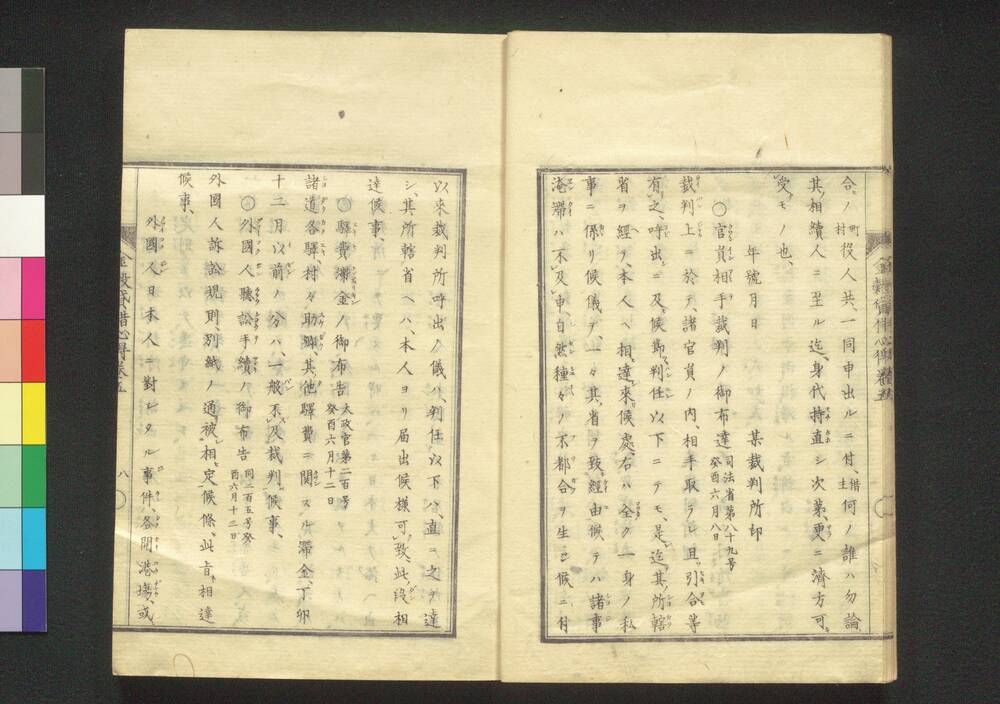 合ノ町村役人共、一同申出ルニ付、借主何ノ誰ハ勿論、
其相續人ニ至ル迄、身代持直シ次第、更ニ濟方可
受モノ也、
年號月日　某裁判所印
〇官員相手裁判ノ御布達 司法省第八十九号 癸酉六月八日
裁判上ニ於テ、諸官員ノ内、相手取ラレ且引合等
有之、呼出ニ及候節、判任以下ニテモ、是迄其所轄
省ヲ經テ、本人ヘ相達來候處、右ハ全ク一身ノ私
事ニ係リ候儀ヲ、一々其省ヲ致經由候テハ諸事
淹滯ハ不及申、自然種々ノ不都合ヲ生シ候ニ付
以來裁判所呼出ノ儀ハ、判任以下ハ、直ニ之ヲ達
シ、其所轄省ヘハ、本人ヨリ届出候樣可致、此段相
達候事、
〇驛費滯金ノ御布告 太政官第二百号 癸酉六月十二日
諸道各驛、村々助郷、其他驛費ニ関スル滯金、丁卯
十二月以前ノ分ハ、一般不及裁判候事、
〇外國人聽訟手續ノ御布告 同二百五号癸酉六月十二日
外國人訴訟規則、別紙ノ通被相定候條、此旨相達
候事、
外國人日本人ニ對シタル事件、各開港塲、或
八